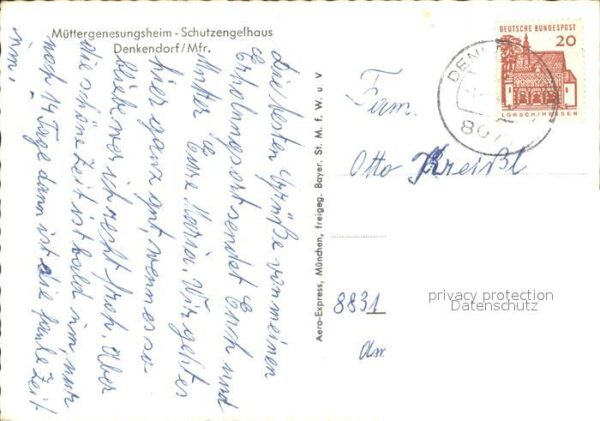 Müttergenesungsheim - Schutzengelhaus
Denkendorf/Mfr.
Die besten Grüße von meinen
Erholungsort sendet Euch und
Mutter Eure Maria. Wir geht es
hier ganz gut, wenn es so
bliebe wär ich recht froh. Aber
die schöne Zeit ist bald um, nur
noch 14 Tage dann ist die faule Zeit
um!
Aero-Express, München, freigeg. Bayer. St. M. f. W. u. V
DEUTSCHE BUNDESPOST
20
LORSCH/HESSEN
DEN
807
Fam.
Otto Kreißl
8831
privacy protection
Datenschutz